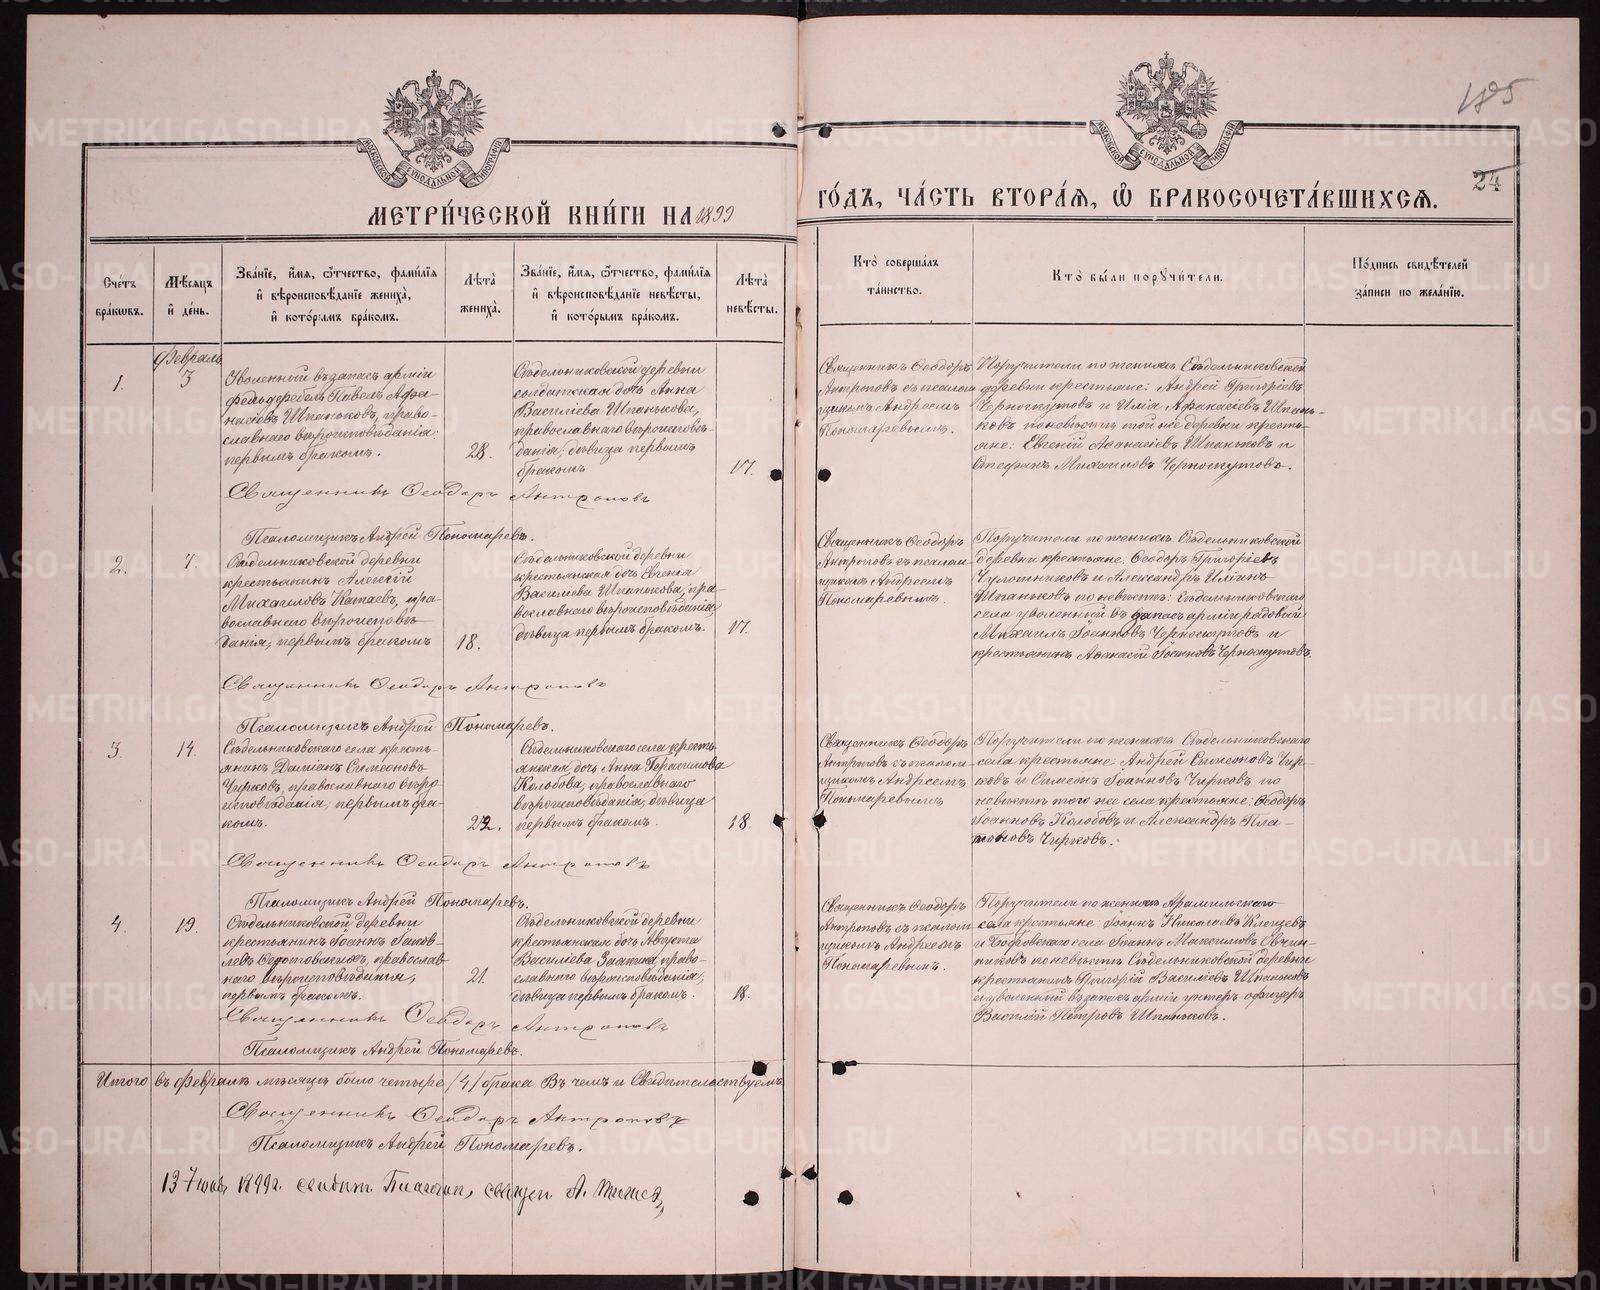 185
24
МОСКОВСКОЙ СѴНОДАЛЬНОЙ ТИПОГРАФІИ
МОСКОВСКОЙ СѴНОДАЛЬНОЙ ТИПОГРАФІИ
МЕТРИ́ЧЕСКОЙ КНИ́ГИ НА 1899
ГО́ДЪ, ЧА́СТЬ ВТОРА́Я, Ѽ БРАКОСОЧЕТА́ВШИХСЯ.
Сче́тъ бра́кωвъ.
Мѣ́сяцъ и҆ де́нь.
Зва́нїе, и҆́мя, ѻ҆́тчество, фами́лїя и҆ вѣроисповѣ́данїе жениха̀, и҆ кото́рымъ бра́комъ.
Лѣ́та жениха̀.
Зва́нїе, и҆́мя, ѻ҆́тчество, фами́лїя и҆ вѣроисповѣ́данїе невѣ́сты, и҆ кото́рымъ бра́комъ.
Лѣ́та невѣ́сты.
Кто̀ соверша́лъ та́инство.
Кто̀ бы́ли порꙋчи́тели.
По́дпись свидѣ́телей за́писи по жела́нїю.
Февраль
1.
3
Уволенный въ запасъ арміи
фельдфебель Павелъ Афа-
насіевъ Шпаньковъ, право-
славнаго вѣроисповѣданія,
первымъ бракомъ.
28.
Сѣдельниковской деревни
солдатская дочь Анна
Василіева Шпанькова,
православнаго вѣроисповѣ-
данія, дѣвица первымъ
бракомъ
17.
Священникъ Ѳеодоръ
Антроповъ съ псалом-
щикомъ Андреемъ
Пономаревымъ.
Поручители по женихѣ Сѣдельниковской
деревни крестьяне: Андрей Григоріевъ
Черноскутовъ и Илія Афанасіевъ Шпань-
ковъ по невѣстѣ той же деревни кресть-
яне: Евгеній Аѳанасіевъ Шпаньковъ и
Стефанъ Михаиловъ Черноскутовъ.
Священникъ Ѳеодоръ Антроповъ
Псаломщикъ Андрей Пономаревъ.
2.
7.
Сѣдельниковской деревни
крестьянинъ Алексій
Михаиловъ Катаевъ, пра-
вославнаго вѣроисповѣ-
данія, первымъ бракомъ
18.
Сѣдельниковской деревни
крестьянская дочь Евгенія
Василіева Шпанькова, пра-
вославнаго вѣроисповѣданія,
дѣвица первымъ бракомъ.
17.
Священникъ Ѳеодоръ
Антроповъ съ псалом-
щикомъ Андреемъ
Пономаревымъ.
Поручители по женихѣ Сѣдельниковской
деревни крестьяне: Ѳеодоръ Григоріевъ
Чулошниковъ и Александръ Иліинъ
Шпаньковъ по невѣстѣ: Сѣдельниковскаго
села уволенный въ запасъ арміи рядовой
Михаилъ Іоанновъ Черноскутовъ и
крестьянинъ Аѳанасій Іоанновъ Черноскутовъ.
Священникъ Ѳеодоръ Антроповъ
Псаломщикъ Андрей Пономаревъ.
3.
14.
Сѣдельниковскаго села кресть-
янинъ Даміанъ Симеоновъ
Чирковъ, православнаго вѣро-
исповѣданія, первымъ бра-
комъ.
22.
Сѣдельниковскаго села кресть-
янская дочь Анна Герасимова
Колобова, православнаго
вѣроисповѣданія, дѣвица
первымъ бракомъ.
18.
Священникъ Ѳеодоръ
Антроповъ съ псалом-
щикомъ Андреемъ
Пономаревымъ
Поручители по женихѣ Сѣдельниковскаго
села крестьяне: Андрей Симеоновъ Чир-
ковъ и Симеонъ Іоанновъ Чирковъ по
невѣстѣ того же села крестьяне: Ѳеодоръ
Іоанновъ Колобовъ и Александръ Пла-
тоновъ Чирковъ.
Священникъ Ѳеодоръ Антроповъ
Псаломщикъ Андрей Пономаревъ.
4.
19.
Сѣдельниковской деревни
крестьянинъ Іоаннъ Іаков-
левъ православ-
наго вѣроисповѣданія,
первымъ бракомъ.
21.
Сѣдельниковской деревни
крестьянская дочь Августа
Василіева право-
славнаго вѣроисповѣданія,
дѣвица первымъ бракомъ.
18.
Священникъ Ѳеодоръ
Антроповъ съ псалом-
щикомъ Андреемъ
Пономаревымъ.
Поручители по женихѣ Арамильскаго
села крестьяне: Іоаннъ Николаевъ Клещевъ
и села Іоаннъ Максимовъ Овчин-
никовъ по невѣстѣ Сѣдельниковской деревни
крестьянинъ Григорій Василіевъ Шпаньковъ
и уволенный въ запасъ арміи унтеръ офицеръ
Василій Петровъ Шпаньковъ.
Священникъ Ѳеодоръ Антроповъ
Псаломщикъ Андрей Пономаревъ.
Итого въ Февралѣ мѣсяцѣ было четыре /4/ брака. Въ чемъ и Свидѣтельствуемъ
Священникъ Ѳеодоръ Антроповъ
Псаломщикъ Андрей Пономаревъ.
1899г. Благочин. священ. А.
METRIKI.GASO-URAL.RU